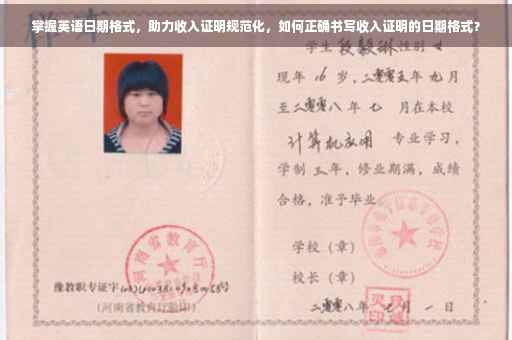 掌握英语日期格式，助力收入证明规范化，如何正确书写收入证明的日期格式？
学生段毅琳性别女
现年16岁，二零零五年九月
至二零零八年七月在本校
计算机应用 专业学习，
学制三年，修业期满，成绩
合格，准予毕业。
学校（章）
校长（章）
二零零八年七月一日
河南省教育厅
豫教职专证字
(河南省教育厅验印)